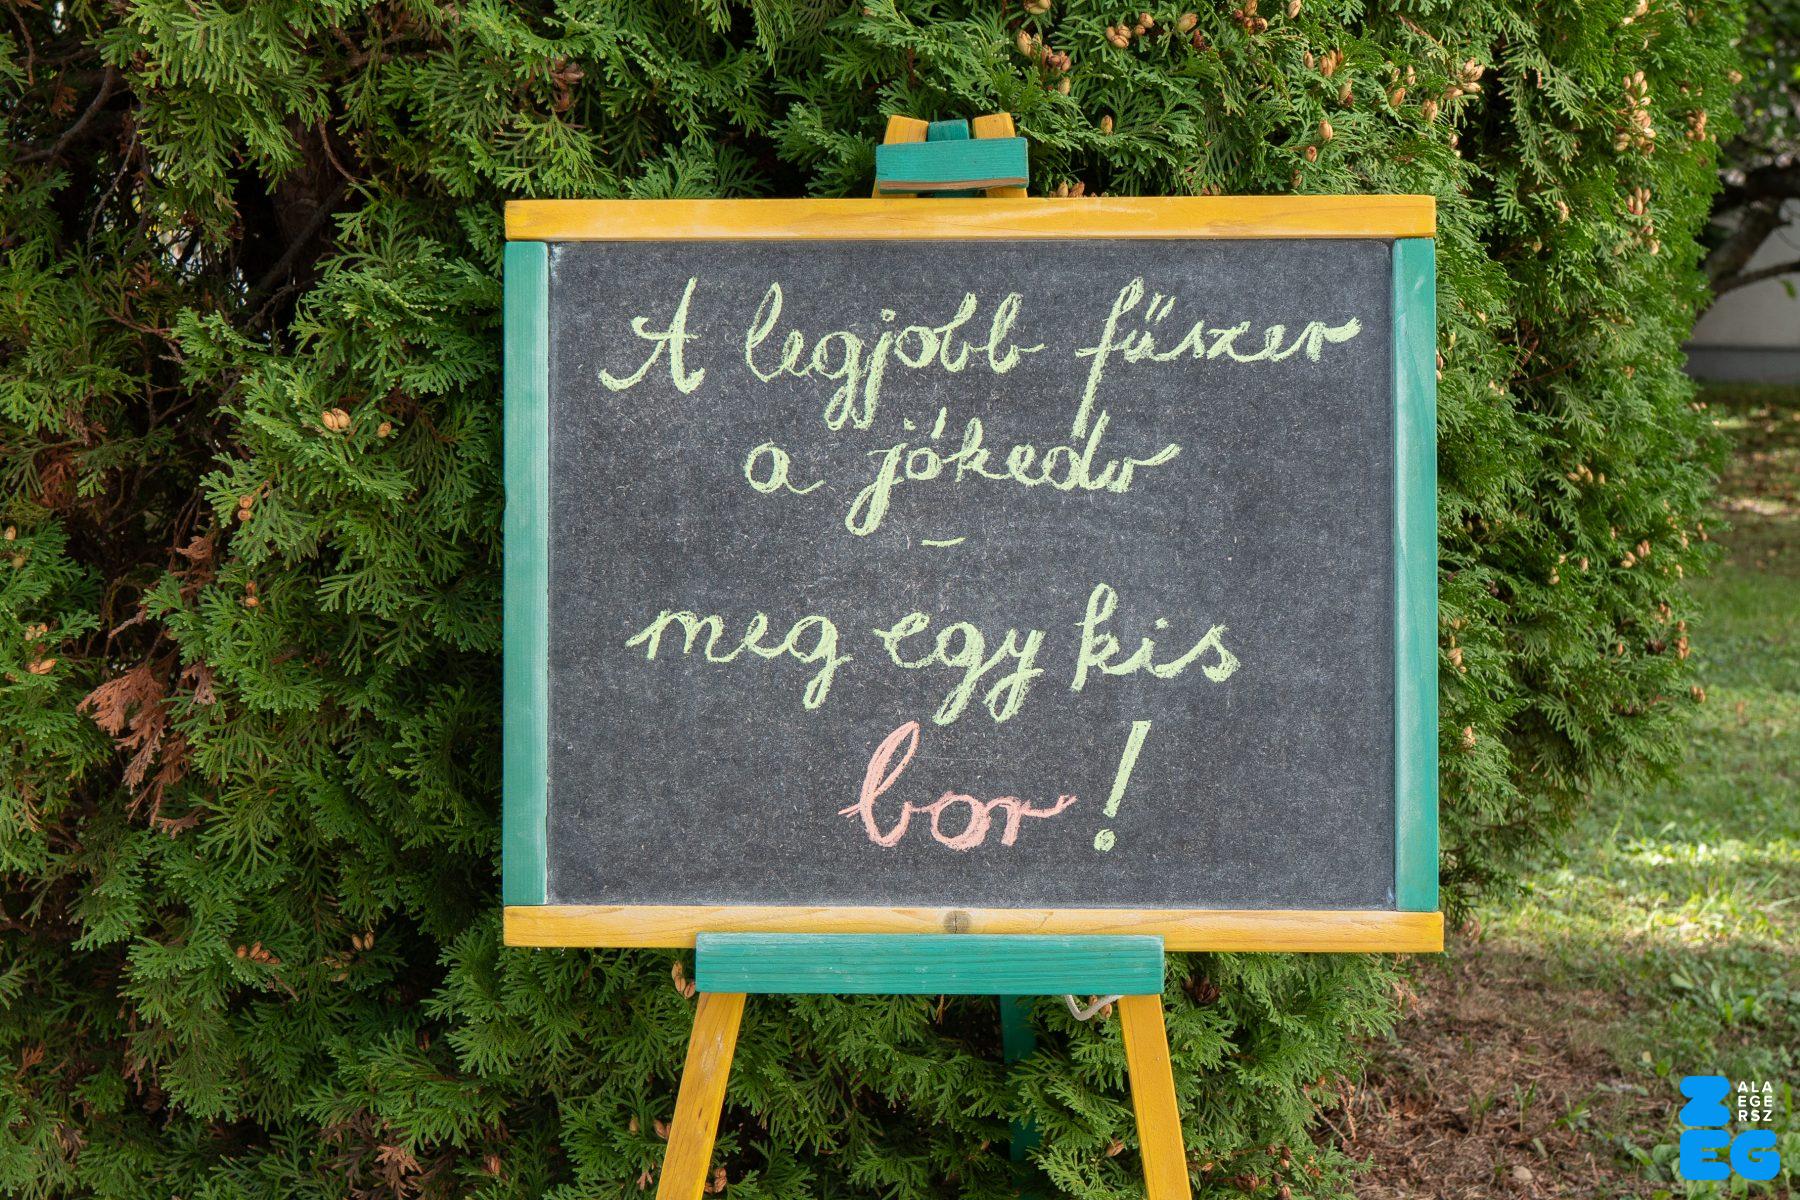 A legjobb fűszer
a jókedv
–
meg egy kis
bor!
ZALA
EGE
RSZ
EG